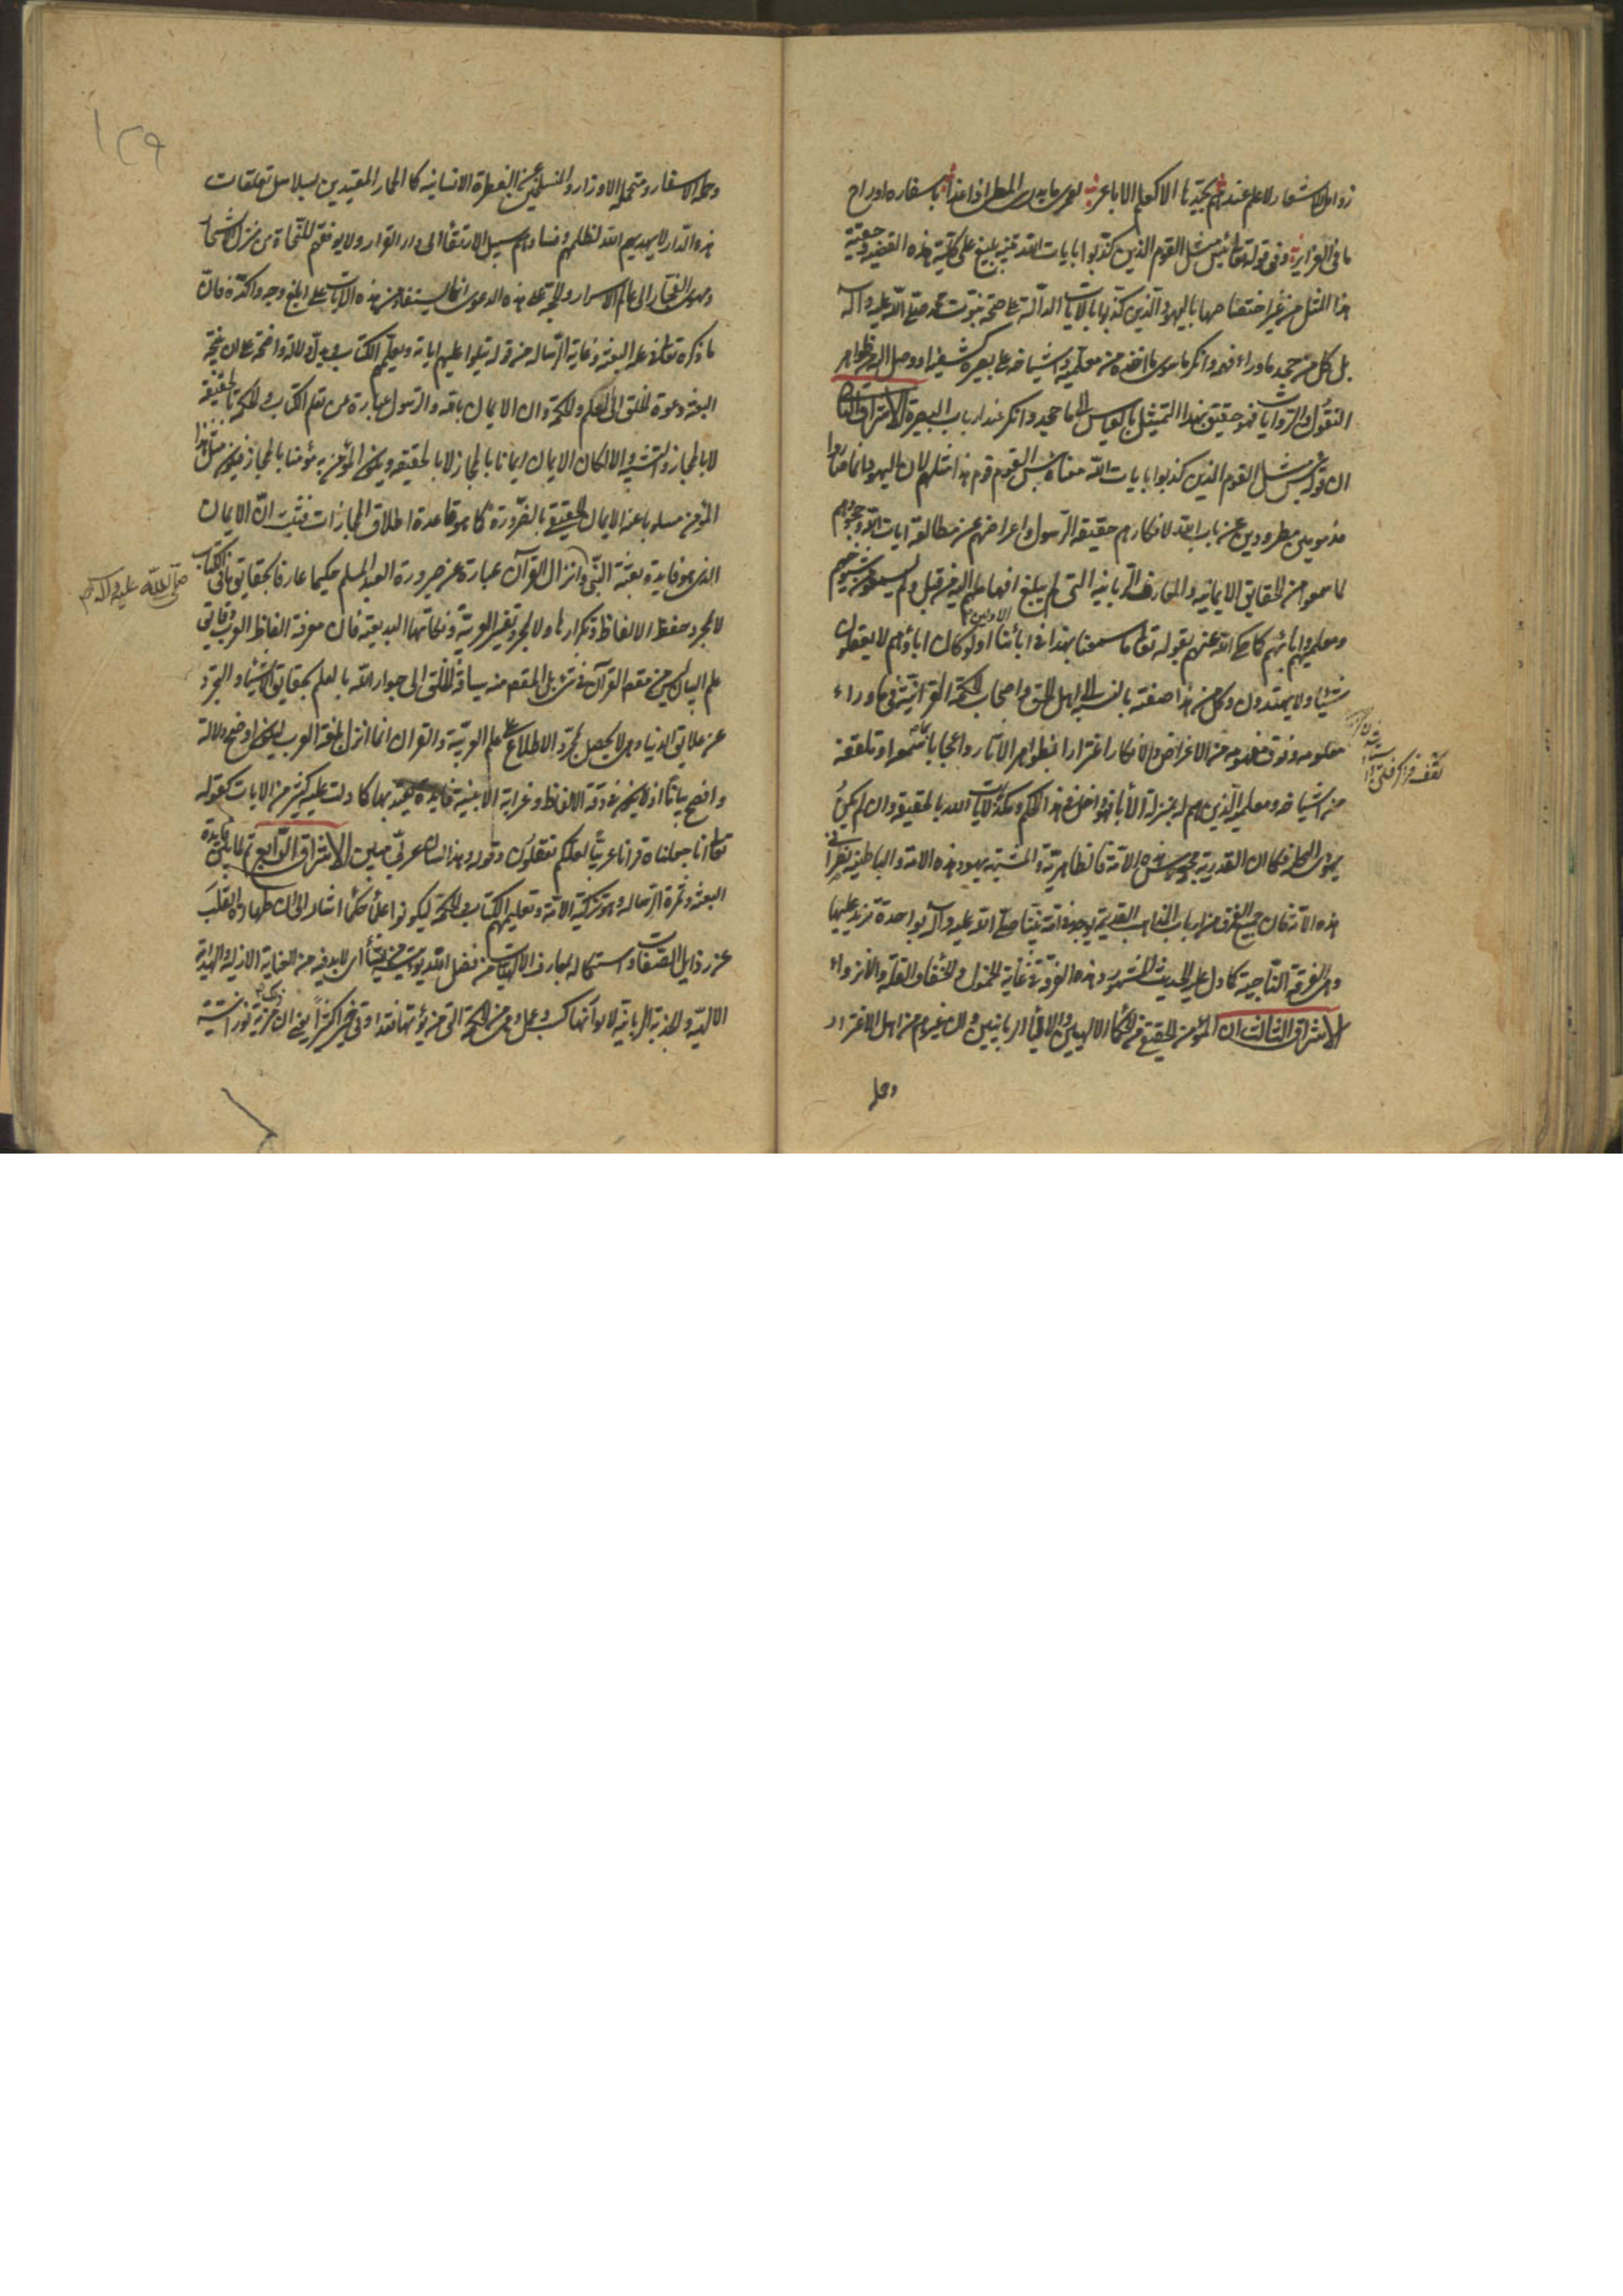 زوامل الاشعار لا علم عندهم بجيدها الا كعلم الاباعر لعمرك ما يدرى المطى اذا غدا باسفاره او راح
ما فى الغراير وفى قوله تعالى بئس مثل القوم الذين كذبوا بايات الله تنبيه بليغ على كلية هذه القضية وحقية
هذا المثل من غير اختصاصها باليهود الذين كذبوا بالايات الدالة على صحة نبوة محمد صلى الله عليه وآله
بل كل من جحد ما وراء فهمه وانكر ما سوى ما اخذه من معلميه واشياخه على بصيرة كشفية او وصل اليه من ظواهر
النقول والروايات فهو حقيق بهذا التمثيل بالقياس الى ما جحد وانكر عند ارباب البصيرة الاشراق الثانى
ان قوله بئس مثل القوم الذين كذبوا بايات الله معناه بئس القوم قوم هذا مثلهم لان اليهود انما صاروا
مذمومين مطرودين عن باب الله لانكارهم حقيقة الرسول واعراضهم عن مطالعة ايات الله وجحودهم
لما سمعوا من الحقايق الايمانية والمعارف الربانية التى لم يبلغ افهامهم اليه من قبل ولم يسمعوا من شيوخهم
ومعلميهم وابائهم كما حكى الله عنهم بقوله تعالى ما سمعنا بهذا فى ابائنا الاولين او لو كان اباؤهم لا يعقلون
شيئا ولا يهتدون وكل من هذا صفته بالنسبة الى اهل الحق واصحاب الحكمة القرانية فى ما وراء
معلومه وفوق مفهومه من الاعراض والانكار اغترارا بظواهر الاثار واعجابا بما سمعوا وتلقفه
من اشياخه ومعلميه الذين هم له بمنزلة الأباء فهو داخل فى هذا الحكم ومكذب لايات الله بالحقيقة وان لم يكن
يهودى الملة وكما ان القدرية مجوس هذه الامة فالظاهرية والمشبهة يهود هذه الامة والباطنية نصرانى
هذه الامة فان جميع الفرق من ارباب المذاهب القديمة يوجد فى امة نبينا صلى الله عليه وآله بواحدة تزيد عليها
وهى الفرقة الناجية كما دل عليه الحديث المشهور وهذه الفرقة فى غاية الخمول والخفاء والقلة والانزواء
الاشراق الثالث ان المؤمن الحقيقى من الحكماء الالهيين والاولياء الربانيين وان غيرهم من اهل الاغترار
وحملة
١٢٩
وحملة الاسفار ومتحملى الاوزار والمنسلخين عن الفطرة الانسانية كالحمار المقيدين بسلاسل تعلقات
هذه الدار لا يهديهم الله لظلمهم وفسادهم سبيل الارتقاء الى دار القرار ولا يوفقهم للنجاة من منزل الاشرار
ومهوى الفجار الى عالم الاسرار والحجة على هذه الدعوى انما يستفاد من هذه الايات على ابلغ وجه واكده فان
ما ذكره تعالى فى علة البعثة وغاية الرسالة من قوله يتلوا عليهم اياته ويعلمهم الكتاب يدل دلالة واضحة على ان نتيجة
البعثة دعوة الخلق الى العلم والحكمة وان الايمان بالله والرسول عبارة عن تعلم الكتاب والحكمة بالحقيقة
لا بالمجاز والتشبيه الا لكان الايمان ايمانا بالمجاز لا بالحقيقة ويكون المؤمن به مؤمنا بالمجاز فيكون مثل هذا
المؤمن مسلوبا عنه الايمان الحقيقى بالضرورة كما هو قاعدة اطلاق المجازات فثبت ان الايمان
الذى هو فايدة بعثة النبى وانزال القرآن عبارة عن صيرورة العبد المسلم حكيما عارفا بحقايق ما فى الكتاب
صلى الله عليه وآله
لا مجرد حفظ الالفاظ وتكرارها ولا مجرد تفسير العربية ونكاتها البديعة فان معرفة الفاظ العرب ودقايق
علم البيان ليس من مقصد القرآن فى شئ بل المقصد منه سياقة الخلق الى جوار الله بالعلم بحقايق الاشياء والتجرد
عن علايق الدنيا وهو لا يحصل بمجرد الاطلاع على علم العربية والقران انما انزل بلغة العرب ليكون اوضح دلالة
وافصح بيانا اذ لا يكون فى دقة الالفاظ وغرابة الابنية فايدة يعتد بها كما دلت عليه كثير من الايات كقوله
تعالى انا جعلناه قرانا عربيا لعلكم تعقلون وقوله وهذا لسان عربى مبين الاشراق الرابع ثم لما بين فايدة
البعثة وثمرة الرسالة وهو تزكية الامة وتعليمهم الكتاب والحكمة ليكونوا علماء حكماء اشار الى ان طهارة القلب
عن رذايل الصفات واستكماله بمعارف الالهيات من فضل الله يؤتيه من يشاء اى لا بد فيه من العناية الازلية والهداية
الالهية والجذبة الربانية لا بأنها كسب وعمل وهى من الحكمة التى من يؤتها فقد اوتى خيرا كثيرا يعنى ان ذلك مزية نورانية